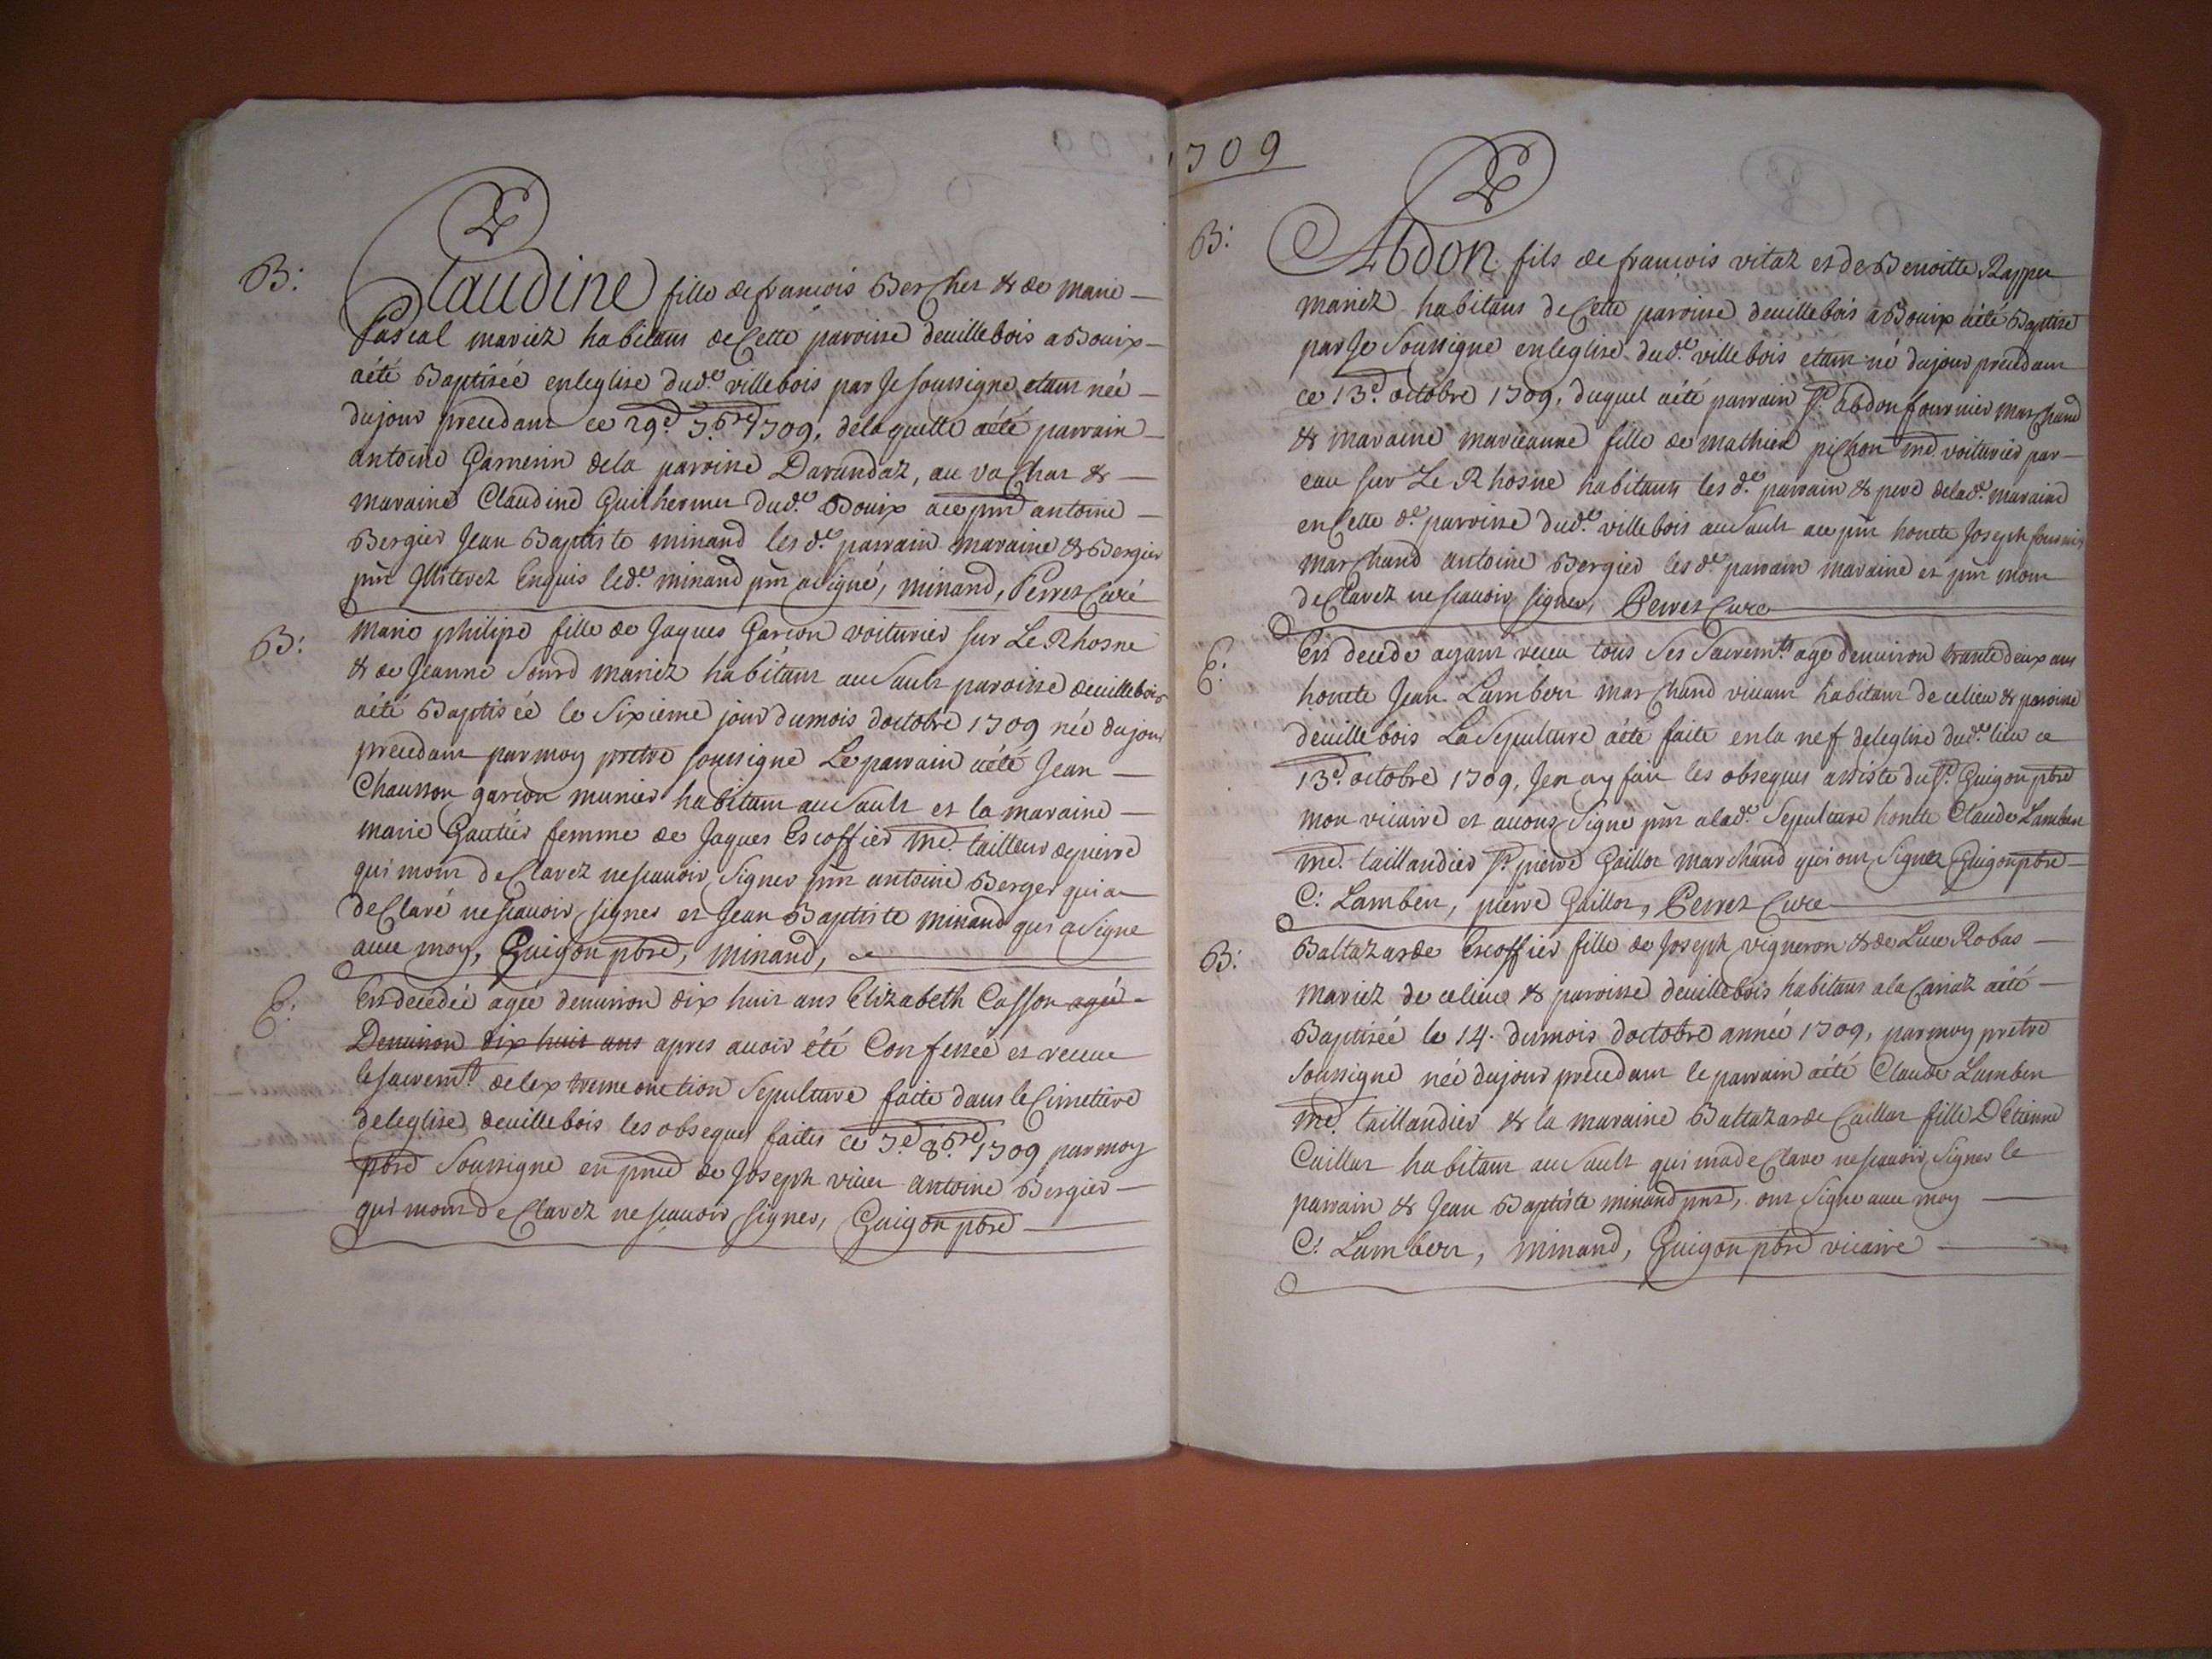 B:
Claudine fille de francois Bercher & de marie
Pascal mariez habitans de Cette paroisse deuillebois a Bouix
aété Baptisée enleglise dud.e villebois par Je soussigne etant née
dujour precedant ce 29e 7bre 1709, delaquelle aété parrain
antoine Gamerin dela paroisse Darandaz, au vachar &
maraine Claudine Guilhermer dud.e Bouix acepnt antoine
Bergier Jean Baptiste minand les d.e parrain maraine & Bergier
pnt Illiterez Enquis led.e minand pnt asigné, minand, Perret Curé
B:
Marie philipe fille de Jaques Garcon voiturier sur Le Rhosne
& de Jeanne Sourd mariez habitant au Sault paroisse deuillebois
aété Baptisée le Sixieme jour dumois doctobre 1709 née dujour
precedant par moy pretre soussigne Le parrain aété Jean
Chausson garcon munier habitant au Sault et la maraine
marie Gautier femme de Jaques Escoffier me. tailleur de pierre
qui mont deClarez nescauoir Signer pnt antoine Berger qui a
deClaré nescauoir signer et Jean Baptiste minand qui a Signe
auec moy, Guigon pbre, minand,
E:
Est decédée agée denuiron dix huit ans Elizabeth Casson agée
Denuiron dix huit ans apres auoir été Confessée et receue
le sacremt. de lextreme onction Sepulture faite dans le Cimetiere
deleglise deuillebois les obseques faites ce 7e 8bre 1709 par moy
pbre Soussigne en pnce de Joseph viuier antoine Bergier
qui mont deClarez nescauoir signer, Guigon pbre
1709
B:
Abdon fils de francois vitaz et de Benoitte Rapper
mariez habitans de Cette paroisse deuillebois a Bouix aété Baptisé
par Je Soussigne enleglise dud.e villebois etant né dujour precedant
ce 13e octobre 1709, duquel aété parrain Sr. Abdon fournier marchand
& maraine marieanne fille de mathieu pichon me. voiturier par
eau sur Le Rhosne habitants les d.e parrain & pere delad.e maraine
en Cette d.e paroisse dud.e villebois au Sault acepnt honete Joseph fournier
marchand antoine Bergier les d.e parrain maraine et pnt mont
deClarez nescauoir signer, Perret Cure
E:
Est decede ayant receu tous Ses Sacremts agé denuiron trante deux ans
honete Jean Lambert marchand viuant habitant de ce lieu & paroisse
deuillebois La Sepulture aété faite en la nef deleglise dud.e lieu ce
13e octobre 1709, Jen ay fait les obseques assiste du Sr. Guigon pbre
mon vicaire et auons Signe pnt a lad.e Sepulture honete Claude Lambert
me. taillandier Sr. pierre Gaillot marchand qui ont Signez Guigon pbre
C: Lambert, pierre Gaillot, Perret Cure
B:
Baltazarde Escoffier fille de Joseph vigneron & de Luce Robas
mariez de ce lieu & paroisse deuillebois habitans a la Cariaz aété
Baptisée le 14. dumois doctobre année 1709, par moy pretre
Soussigne née dujour precedant le parrain aété Claude Lambert
me. taillandier & la maraine Baltazarde Caillat fille D'Etienne
Caillat habitant au Sault qui ma deClare nescauoir Signer le
parrain & Jean Baptiste minand pnt, ont Signe auec moy
C: Lambert, minand, Guigon pbre vicaire